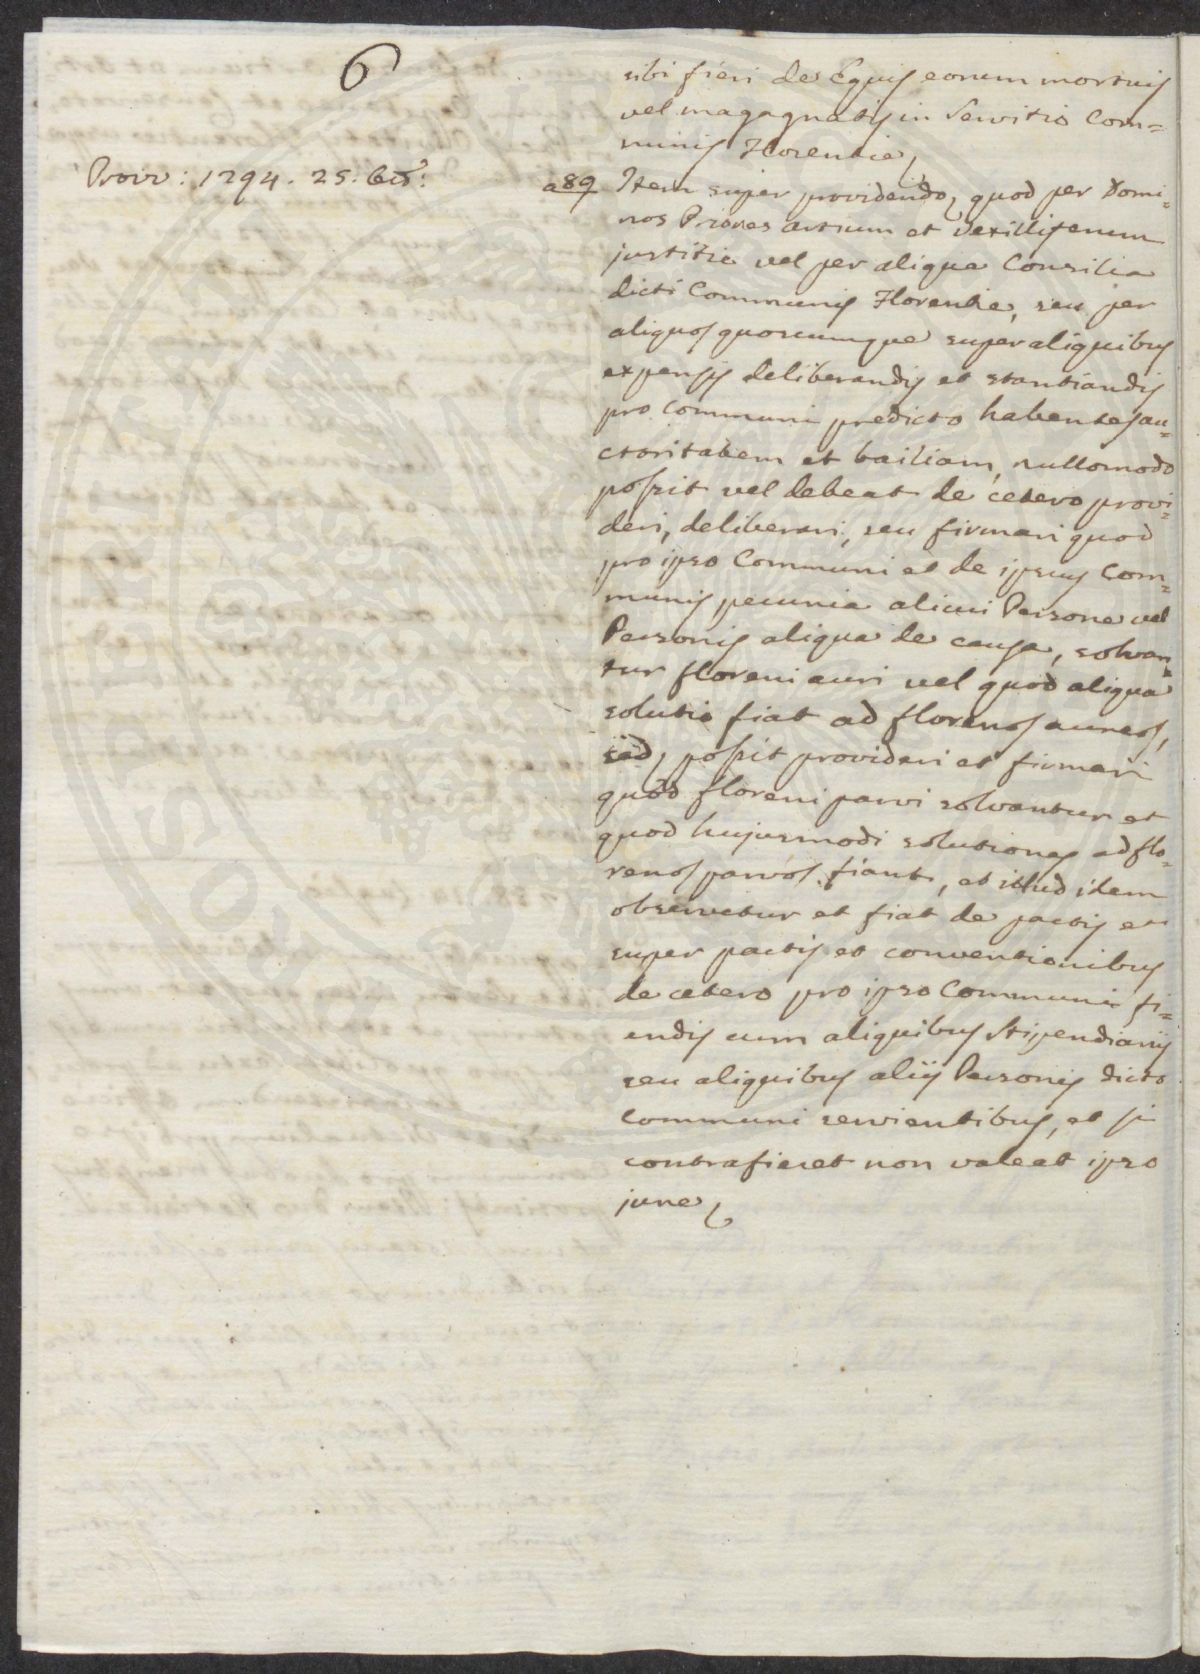 6
sibi fieri de Equis eorum mortuis
vel magagnatis in Servitio Com=
munis Florentie,
Prov: 1294. 25. 8bris:
a 89 Item super providendo, quod per Domi=
nos Priores artium et Vexilliferum
justitie vel per aliqua Consilia
dicti Communis Florentie, seu per
aliquos quoscumque super aliquibus
expensis deliberandis et stantiandis
pro communi predicto habentes au=
ctoritatem et bailiam, nullomodo
possit vel debeat de cetero provi=
deri, deliberari, seu firmari quod
pro ipso Communi et de ipsius Com=
munis pecunia alicui Persone vel
Personis aliqua de causa, solvan=
tur floreni auri vel quod aliqua
solutio fiat ad florenos aureos,
sed, possit provideri et firmari
quod floreni parvi solvantur et
quod hujusmodi solutiones ad flo=
renos parvos fiant, et illud idem
observetur et fiat de pactis et
super pactis et conventionibus
de cetero pro ipso Communi fi=
endis cum aliquibus Stipendiariis
seu aliquibus aliis Personis dicto
Communi servientibus, et si
contrafieret non valeat ipso
jure,